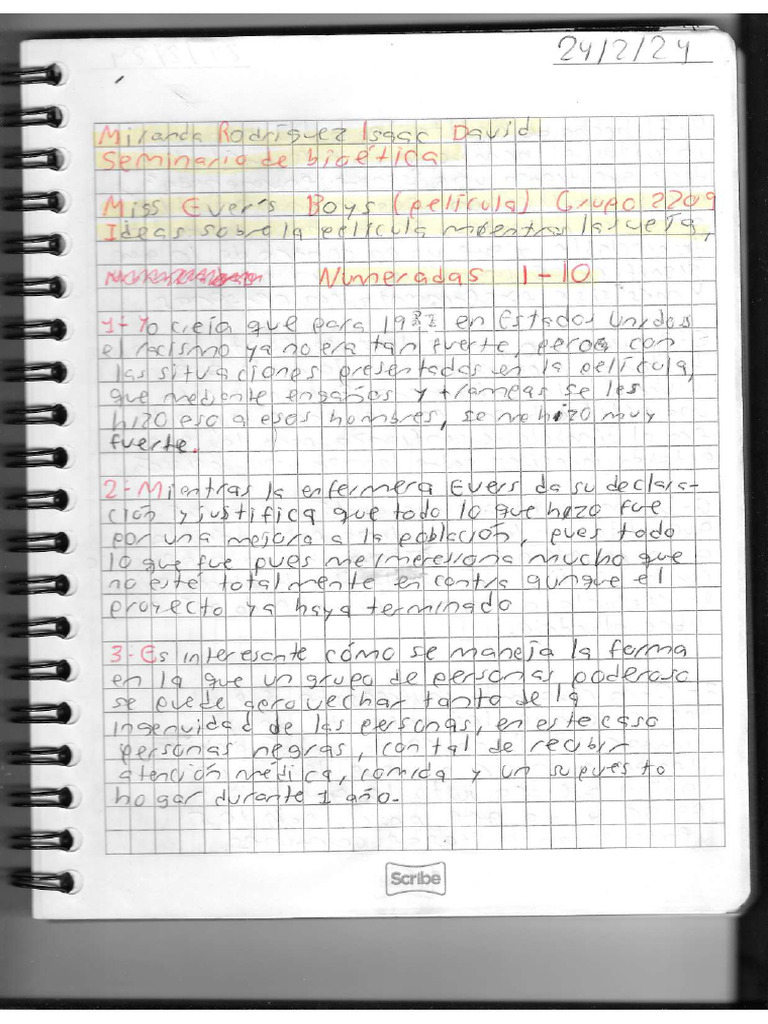 24/2/24
Miranda Rodríguez Isaac David
Seminario de bioética
Miss Ever's Boys (película) Grupo 2209
Ideas sobre la película mientras la veía.
Numeradas 1-10
1- Yo creía que para 1932 en Estados Unidos
el racismo ya no era tan fuerte, pero con
las situaciones presentadas en la película,
que mediante engaños y trampas se les
hizo eso a esos hombres, se me hizo muy
fuerte.
2- Mientras la enfermera Evers da su declara-
ción y justifica que todo lo que hizo fue
por una mejora a la población, pues todo
lo que fue pues me impresiona mucho que
no esté totalmente en contra aunque el
proyecto ya haya terminado
3- Es interesante cómo se maneja la forma
en la que un grupo de personas poderoso
se puede aprovechar tanto de la
ingenuidad de las personas, en este caso
personas negras, con tal de recibir
atención médica, comida y un supuesto
hogar durante 1 año.
Scribe